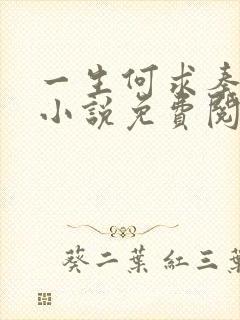 一生何求奏
小說免費閱
葵二葉紅三葉